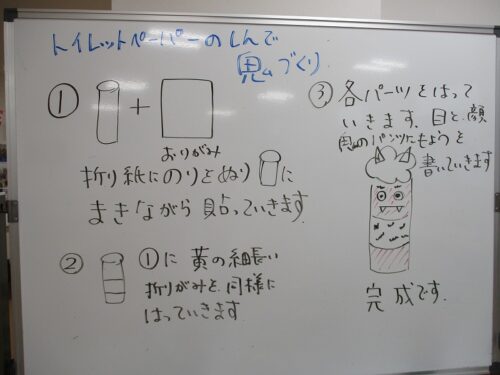 トイレットペーパーのしんで
鬼づくり
① +
おりがみ
折り紙にのりをぬり に
まきながら貼っていきます
② ①に 黄の細長い
折りがみを、同様に
はっていきます
③ 各パーツをはって
いきます。目と、顔
鬼のパンツにもようを
書いていきます
完成です.